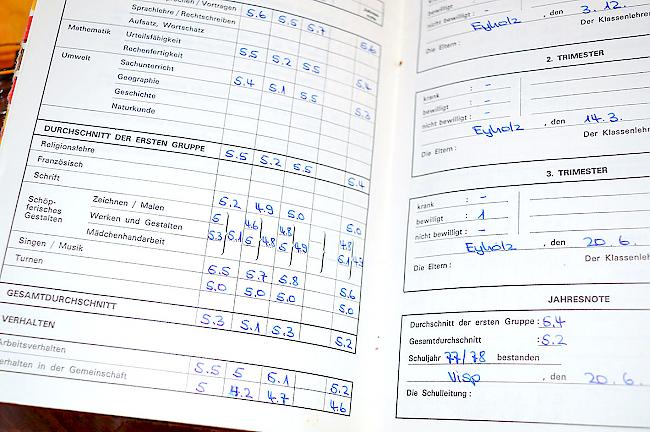 Sprachlehre / Rechtschreiben 5.6 5.5 5.7 5.6
Aufsatz, Wortschatz
Mathematik Urteilsfähigkeit
Rechenfertigkeit 5.5 5.2 5.5 5.4
Umwelt Sachunterricht
Geographie 5.4 5.1 5.5 5.3
Geschichte
Naturkunde
DURCHSCHNITT DER ERSTEN GRUPPE 5.5 5.2 5.5 5.4
Religionslehre
Französisch
Schrift 5.2 4.9 5.0 5.0
Schöpferisches Gestalten
Zeichnen / Malen 5 4.6 4.8 4.8
Werken und Gestalten 5.3 5.1 5 4.8 5 4.9 5.1
Mädchenhandarbeit
Singen / Musik 5.5 5.7 5.8 5.6
Turnen 5.0 5.0 5.0 5.0
GESAMTDURCHSCHNITT 5.3 5.1 5.3 5.2
VERHALTEN
Arbeitsverhalten 5.5 5 5.1 5.2
Verhalten in der Gemeinschaft 5 4.2 4.7 4.6
nicht bewilligt : -
Eyholz , den 3. 12.
Die Eltern: Der Klassenlehrer
2. TRIMESTER
krank : -
bewilligt : -
nicht bewilligt : -
Eyholz , den 14. 3.
Die Eltern : Der Klassenlehrer
3. TRIMESTER
krank : -
bewilligt : 1
nicht bewilligt : -
Eyholz , den 20. 6.
Die Eltern : Der Klassenlehrer
JAHRESNOTE
Durchschnitt der ersten Gruppe : 5.4
Gesamtdurchschnitt : 5.2
Schuljahr 77/78 bestanden
Visp , den 20. 6.
Die Schulleitung :